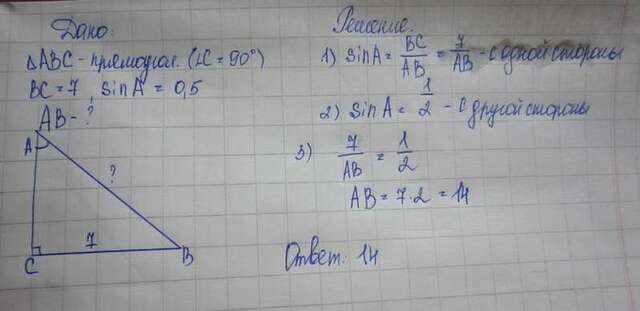 Дано:
ΔABC - прямоугол. (∠C = 90°)
BC = 7, sin A = 0,5
AB - ?
A
?
7
C
B
Решение.
1) sin A = BC/AB = 7/AB - с одной стороны
2) sin A = 1/2 - с другой стороны
3) 7/AB = 1/2
AB = 7·2 = 14
Ответ: 14